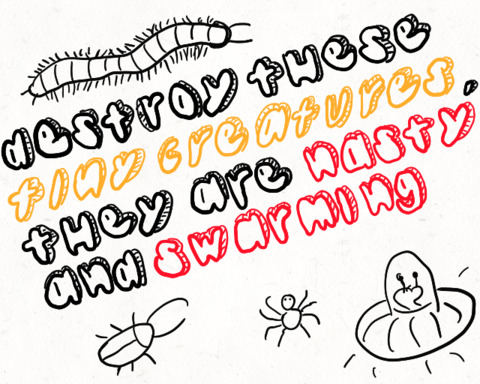 destroy these
tiny creatures,
they are nasty
and swarming